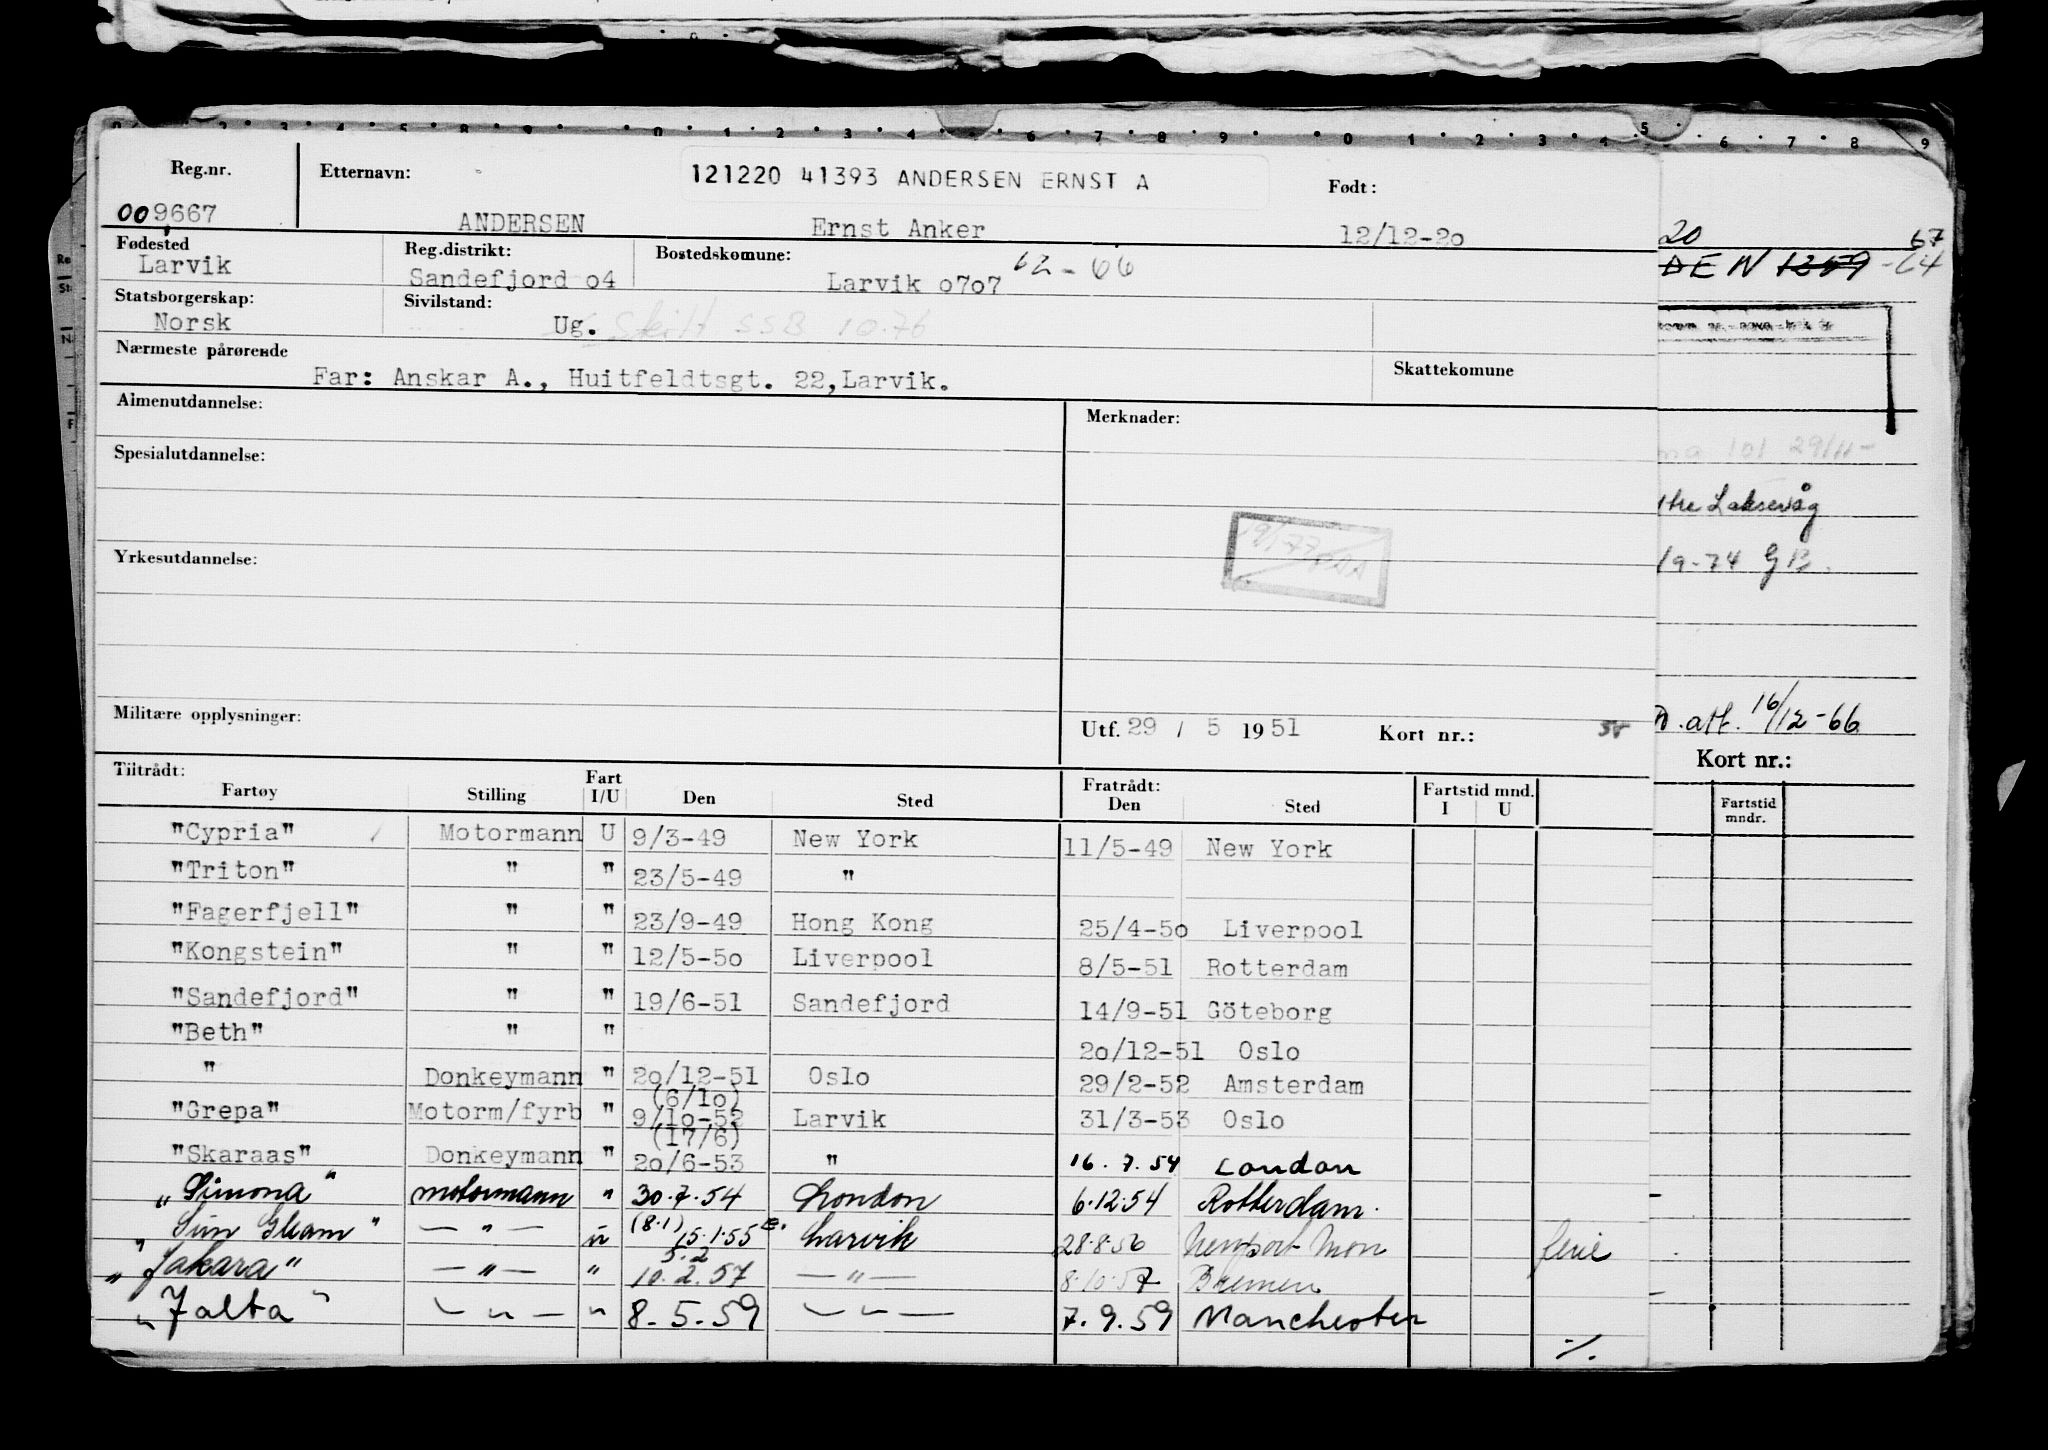 Reg.nr. Etternavn: 121220 41393 ANDERSEN ERNST A Født:
009667 ANDERSEN Ernst Anker 12/12-2o
Fødested Reg.distrikt: Bostedskomune: 62-66
Larvik Sandefjord o4 Larvik o7o7
Statsborgerskap: Sivilstand:
Norsk Ug. Skilt SSB 10.76
Nærmeste pårørende Skattekomune
Far: Anskar A., Huitfeldtsgt. 22,Larvik.
Almenutdannelse: Merknader:
Spesialutdannelse:
Yrkesutdannelse:
Militære opplysninger: Utf. 29 / 5 1951 Kort nr.:
Tiltrådt: Fart Fratrådt: Fartstid mnd.
Fartøy Stilling I/U Den Sted Den Sted I U
"Cypria" Motormann U 9/3-49 New York 11/5-49 New York
"Triton" " " 23/5-49 "
"Fagerfjell" " " 23/9-49 Hong Kong 25/4-5o Liverpool
"Kongstein" " " 12/5-5o Liverpool 8/5-51 Rotterdam
"Sandefjord" " " 19/6-51 Sandefjord 14/9-51 Göteborg
"Beth" " " 2o/12-51 Oslo
" Donkeymann " 2o/12-51 Oslo 29/2-52 Amsterdam
(6/1o)
"Grepa" Motorm/fyrb " 9/1o-52 Larvik 31/3-53 Oslo
(17/6)
"Skaraas" Donkeymann " 2o/6-53 " 16.7.54 London
"Simona" motormann " 30.7.54 London 6.12.54 Rotterdam.
"Sun Gleam" — " — u (8.1) 15.1.55 Larvik 28.8.56 Newport Mon ferie
5.2
"Jakara" — " — " 10.2.57 — " — 8.10.57 Bremen
"Jalta" — " — " 8.5.59 — " — 7.9.59 Manchester
./.
20 67
DEN 1259 -64
101 29/11-
Laksevåg
19-74 GB.
att. 16/12-66
Kort nr.:
Fartstid
mndr.